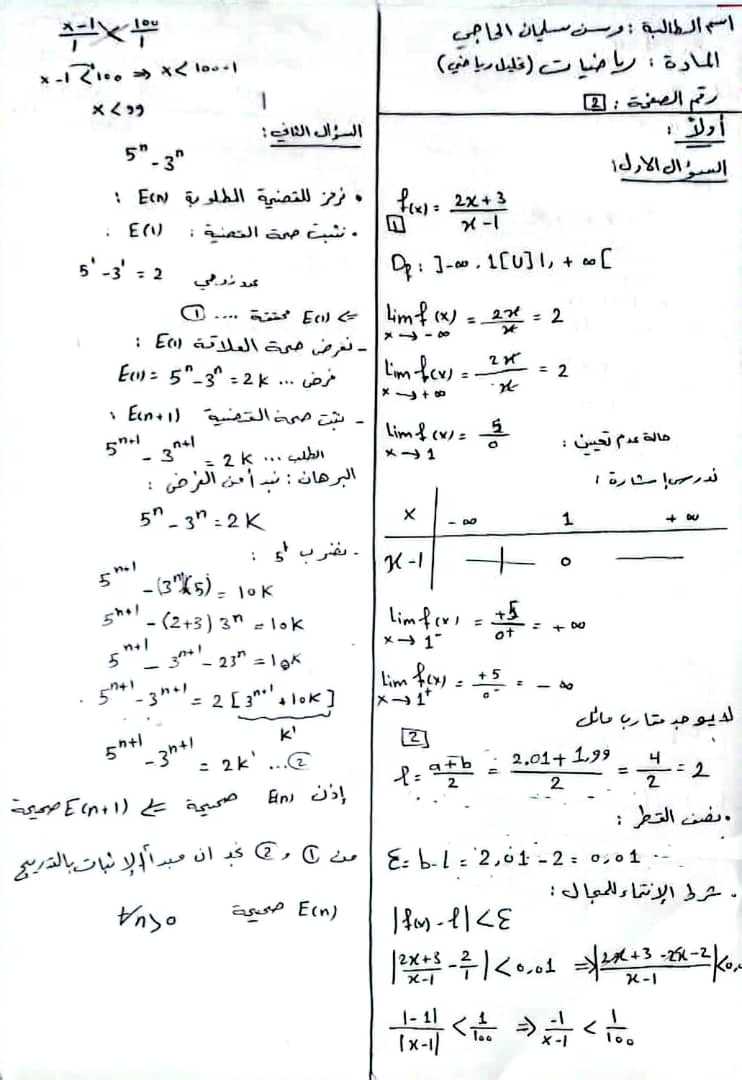 اسم الطالبة : وسن سليمان الحاجي
المادة : رياضيات (تحليل رياضي)
رقم الصفحة : 2
أولاً :
السؤال الاول:
1 f(x) = (2x+3)/(x-1)
Df : ]-∞ , 1[ U ]1, +∞[
lim f(x) x→-∞ = 2x/x = 2
lim f(x) x→+∞ = 2x/x = 2
lim f(x) x→1 = 5/0 حالة عدم تعيين :
ندرس إشارة :
x | -∞ 1 +∞
x-1 | + 0 —
lim f(x) x→1⁻ = +5/0⁺ = +∞
lim f(x) x→1⁺ = +5/0⁻ = -∞
لا يوجد مقارب مائل
2
l = (a+b)/2 = (2,01+1,99)/2 = 4/2 = 2
• نصف القطر :
ε = b-l = 2,01-2 = 0,01
• شرط الإنتماء للمجال :
|f(x) - l| < ε
|(2x+3)/(x-1) - 2/1| < 0,01 ⇒ |(2x+3-2x-2)/(x-1)| < 0,
|-1|/|x-1| < 1/100 ⇒ -1/(x-1) < 1/100
(x-1)/1 × 100/1
x-1 < 100 ⇒ x < 100-1
x < 99
السؤال الثاني :
5ⁿ - 3ⁿ
• نرمز للقضية المطلوبة E(n) :
• نثبت صحة القضية : E(1) :
5¹ - 3¹ = 2 عدد زوجي
⇐ E(1) محققة .... ①
- نفرض صحة العلاقة E(1) :
E(1) = 5ⁿ - 3ⁿ = 2k ... فرض
- نثبت صحة القضية E(n+1) :
5ⁿ⁺¹ - 3ⁿ⁺¹ = 2k ... الطلب
البرهان : نبدأ من الفرض :
5ⁿ - 3ⁿ = 2k
- نضرب 5¹ :
5ⁿ⁺¹ - (3ⁿ)(5) = 10k
5ⁿ⁺¹ - (2+3) 3ⁿ = 10k
5ⁿ⁺¹ - 3ⁿ⁺¹ - 23ⁿ = 10k
5ⁿ⁺¹ - 3ⁿ⁺¹ = 2 [3ⁿ⁺¹ + 10k]
k'
5ⁿ⁺¹ - 3ⁿ⁺¹ = 2k' ... ②
إذن E(n) صحيحة ⇐ E(n+1) صحيحة
من ① و ② نجد ان مبدأ الإثبات بالتدريج
E(n) صحيحة ∀n>0